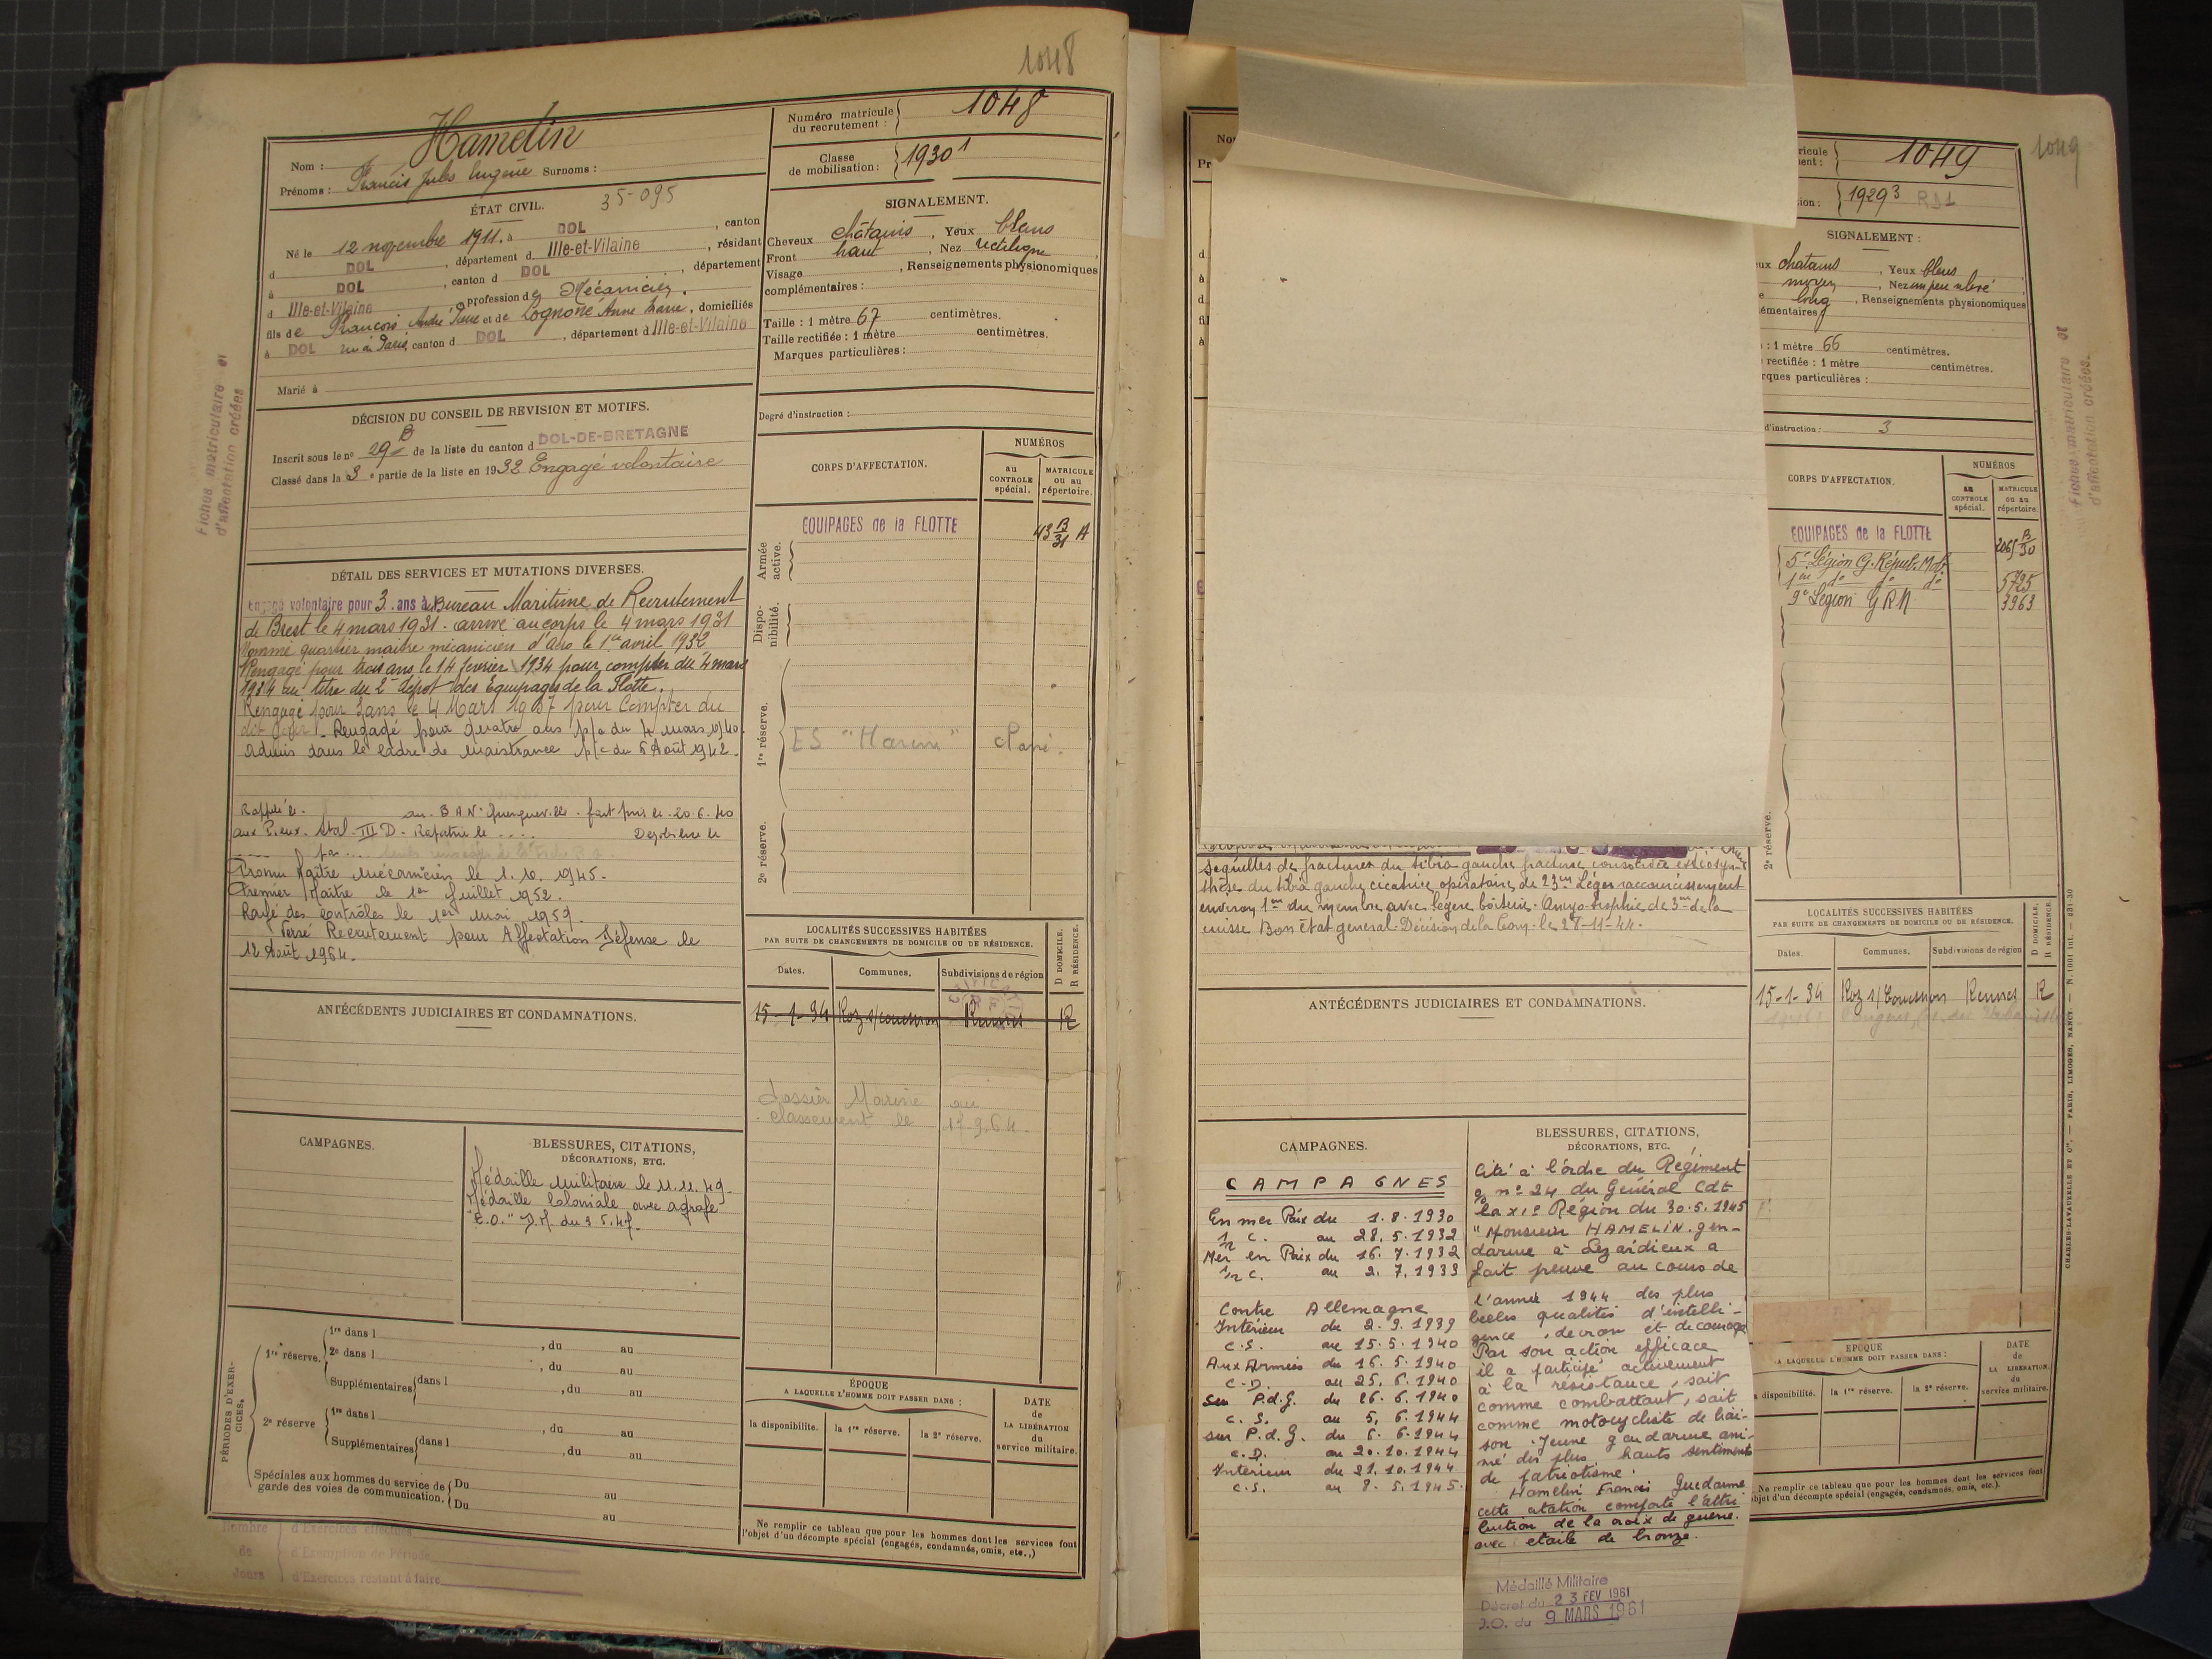 1048
Nom : Hamelin
Prénoms : Francis Jules Eugène Surnoms :
Numéro matricule du recrutement : 1048
Classe de mobilisation : 1930 1
ÉTAT CIVIL. 35-095
Né le 12 novembre 1911, à DOL , canton
d DOL , département d Ille-et-Vilaine , résidant
à DOL , canton d DOL , département
d Ille-et-Vilaine , profession de Mécanicien,
fils de François André Pierre et de Lognoné Anne Marie, domiciliés
à DOL rue de Paris, canton d DOL , département d Ille-et-Vilaine
Marié à
SIGNALEMENT.
Cheveux châtains , Yeux bleus
Front haut , Nez rectiligne
Visage , Renseignements physionomiques
complémentaires :
Taille : 1 mètre 67 centimètres.
Taille rectifiée : 1 mètre centimètres.
Marques particulières :
Degré d'instruction :
Fiches matriculaire et
d'affectation créées
DÉCISION DU CONSEIL DE REVISION ET MOTIFS.
Inscrit sous le no 29 B de la liste du canton d DOL-DE-BRETAGNE
Classé dans la 3 e partie de la liste en 1932 Engagé volontaire
CORPS D'AFFECTATION.
NUMÉROS
au CONTROLE spécial.
MATRICULE ou au répertoire.
Armée active.
EQUIPAGES de la FLOTTE 43 B/31 A
Disponibilité.
1re réserve.
ES "Marine"
2e réserve.
DÉTAIL DES SERVICES ET MUTATIONS DIVERSES.
Engagé volontaire pour 3 ans à Bureau Maritime de Recrutement
de Brest le 4 mars 1931. arrivé au corps le 4 mars 1931
Nommé quartier maitre mécanicien d'Aéro le 1er avril 1932
Rengagé pour trois ans le 14 fevrier 1934 pour compter du 4 mars
1934 au titre du 2e dépôt des Equipages de la Flotte.
Rengagé pour 3 ans le 4 Mars 1937 pour Compter du
dit jour. Rengagé pour quatre ans p/c du 4 mars 1940.
Admis dans le cadre de maistrance p/c du 6 Août 1942.
Rappelé le. au. B A N. Querqueville - fait pris. le. 20.6.40
aux Pieux. Stal. III D - Rapatrié le .... Démobilisé le
Promu Maître Mécanicien le 1. 10. 1945.
Premier Maître le 1er Juillet 1952.
Rayé des contrôles le 1er Mai 1959.
Versé Recrutement pour Affectation Défense le
12 Août 1964.
LOCALITÉS SUCCESSIVES HABITÉES
PAR SUITE DE CHANGEMENTS DE DOMICILE OU DE RÉSIDENCE.
Dates. Communes. Subdivisions de région
D DOMICILE. R RÉSIDENCE.
15-1-34 Roz s/Couesnon Rennes R
dossier Marine au
classement le 17.9.64.
ANTÉCÉDENTS JUDICIAIRES ET CONDAMNATIONS.
CAMPAGNES.
BLESSURES, CITATIONS,
DÉCORATIONS, ETC.
Médaille militaire le 11.11.49.
Médaille Coloniale avec agrafe
"E.O." D.M du 3.5.47.
PÉRIODES D'EXERCICES.
1re réserve.
1re dans l , du au
2e dans l , du au
Supplémentaires dans l , du au
2e réserve
1re dans l , du au
Supplémentaires dans l , du au
Spéciales aux hommes du service de
garde des voies de communication.
Du au
Du au
ÉPOQUE
A LAQUELLE L'HOMME DOIT PASSER DANS :
la disponibilité. la 1re réserve. la 2e réserve.
DATE de LA LIBÉRATION du service militaire.
Ne remplir ce tableau que pour les hommes dont les services font
l'objet d'un décompte spécial (engagés, condamnés, omis, etc.,)
Nombre d'Exercices effectués
de d'Exemption de Période
Jours d'Exercices restant à faire
1049
1049
1929 3
SIGNALEMENT :
chatains , Yeux bleus
moyen , Nez un peu relevé
long , Renseignements physionomiques
: 1 mètre 66 centimètres.
rectifiée : 1 mètre centimètres.
rques particulières :
d'instruction : 3
CORPS D'AFFECTATION.
NUMÉROS
au CONTROLE spécial.
MATRICULE ou au répertoire.
EQUIPAGES de la FLOTTE 2065 B/30
5e Légion G. Répub. Mob.
1ère do do do 5795
9e Légion GRM 3963
2e réserve.
Fiches matriculaire et
d'affectation créées.
séquelles de fractures du tibia gauche fracture consolidée ostéosyn-
thèse du tibia gauche cicatrice opératoire de 23cm Léger raccourcissement
environ 1cm du membre avec légère boiterie. Amyotrophie de 3cm de la
cuisse Bon état général. Décision de la Com. le 28-11-44.
LOCALITÉS SUCCESSIVES HABITÉES
PAR SUITE DE CHANGEMENTS DE DOMICILE OU DE RÉSIDENCE.
Dates. Communes. Subdivisions de région
D DOMICILE. R RÉSIDENCE.
15-1-34 Roz s/Couesnon Rennes R
ANTÉCÉDENTS JUDICIAIRES ET CONDAMNATIONS.
CAMPAGNES.
CAMPAGNES
En mer Paix du 1.8.1930
1/2 C. au 28.5.1932
Mer en Paix du 16.7.1932
1/2 C. au 2.7.1933
Contre Allemagne
Intérieur du 2.9.1939
C.S. au 15.5.1940
Aux Armées du 16.5.1940
C.D. au 25.6.1940
sur P.d.G. du 26.6.1940
C.S. au 5.6.1944
sur P.d.G. du 6.6.1944
C.D. au 20.10.1944
Intérieur du 21.10.1944
C.S. au 8.5.1945.
BLESSURES, CITATIONS,
DÉCORATIONS, ETC.
Cité à l'ordre du Régiment
% no 24 du Général Cdt
la XIe Région du 30.5.1945
"Monsieur HAMELIN. gen-
darme à Lezardieux a
fait preuve au cours de
l'année 1944 des plus
belles qualités d'intelli-
gence, de cran et de courage
Par son action efficace
il a participé activement
à la résistance, soit
comme combattant, soit
comme motocycliste de liai-
son. Jeune gendarme ani-
mé des plus hauts sentiments
de patriotisme.
Hamelin Francis Gendarme
cette citation comporte l'attri-
bution de la croix de guerre.
avec étoile de bronze.
Médaillé Militaire
Décret du 23 FEV 1961
J.O. du 9 MARS 1961
EPOQUE
A LAQUELLE L'HOMME DOIT PASSER DANS :
la disponibilité. la 1re réserve. la 2e réserve.
DATE de LA LIBÉRATION. du service militaire.
Ne remplir ce tableau que pour les hommes dont les services font
objet d'un décompte spécial (engagés, condamnés, omis, etc.).
CHARLES-LAVAUZELLE ET Cie. — PARIS, LIMOGES, NANCY. — N. 1001 int. — 631-30